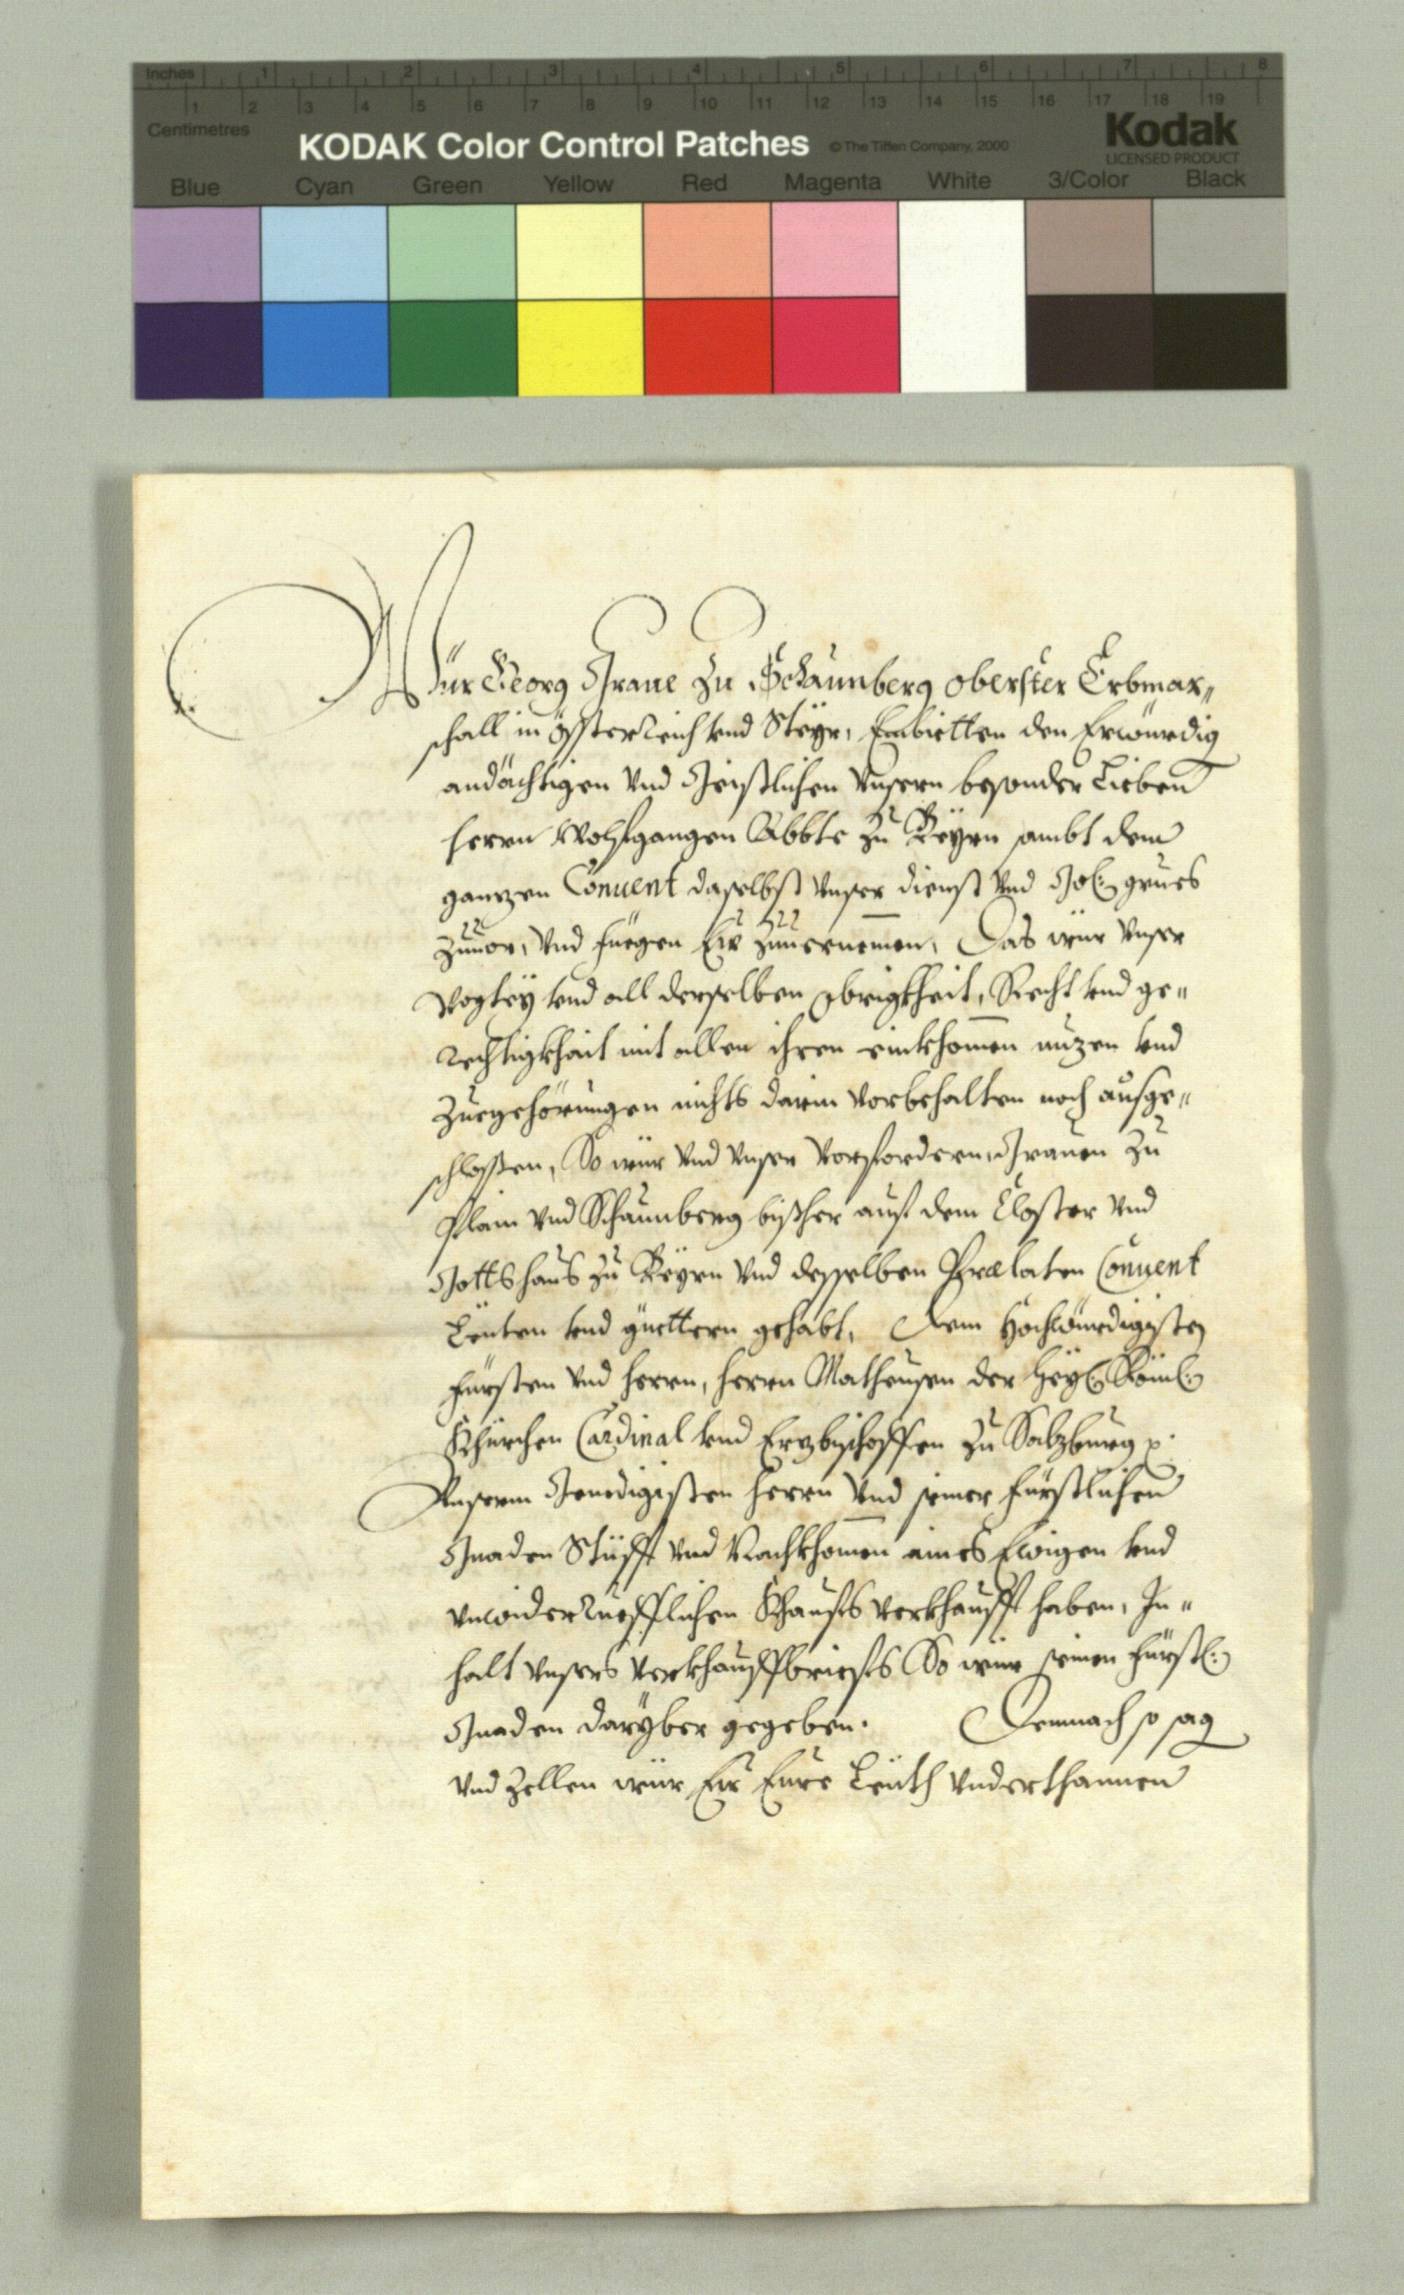 Inches 1 2 3 4 5 6 7 8
1 2 3 4 5 6 7 8 9 10 11 12 13 14 15 16 17 18 19
Centimetres
KODAK Color Control Patches © The Tiffen Company, 2000 Kodak
LICENSED PRODUCT
Blue Cyan Green Yellow Red Magenta White 3/Color Black
Wür Georg Graue zu Schaunberg oberster Erbmar„
schall in össterreich vnd Steyr, Embietten den Erwürdig
andächtigen vnd Geistlichen Vnsern besonder Lieben
herrn Wolfgangen Abbte zu Reyrn sambt dem
ganzen Conuent daselbst vnser dienst vnd grues
zuuor, Vnd fuegen Eür zuuernemen, Das wür vnser
Vogtey vnd all derselben obrigkheit, Recht vnd ge„
rechtigkhait mit allen ihren einkhomen nuzen vnd
zuegehörungen nichts darin vorbehalten noch ausge„
schlossen, So wür vnd vnser Vorfordern Grauen zu
Plain vnd Schaunberg bißher auf dem Closter vnd
Gottshaus zu Reyrn vnd desselben Prælaten Conuent
Leuten vnd güettern gehabt, Dem Hochwürdigisten
fürsten vnd herrn, herrn Matheusen der Heyl: Röml:
Khürchen Cardinal vnd Erzbischoffen zu Salzburg
Vnserm Genedigisten herrn vnd seiner fürstlichen
Gnaden Stüfft vnd Nachkhomen aines Ewigen vnd
vnwiderrueflichen Khaufs verkhaufft haben, In„
halt vnsers verkhauffbriefs So wür seinen fürstl:
Gnaden darüber gegeben. Demnach so sag
vnd zellen wür Eür Eure Leüth vnderthannen